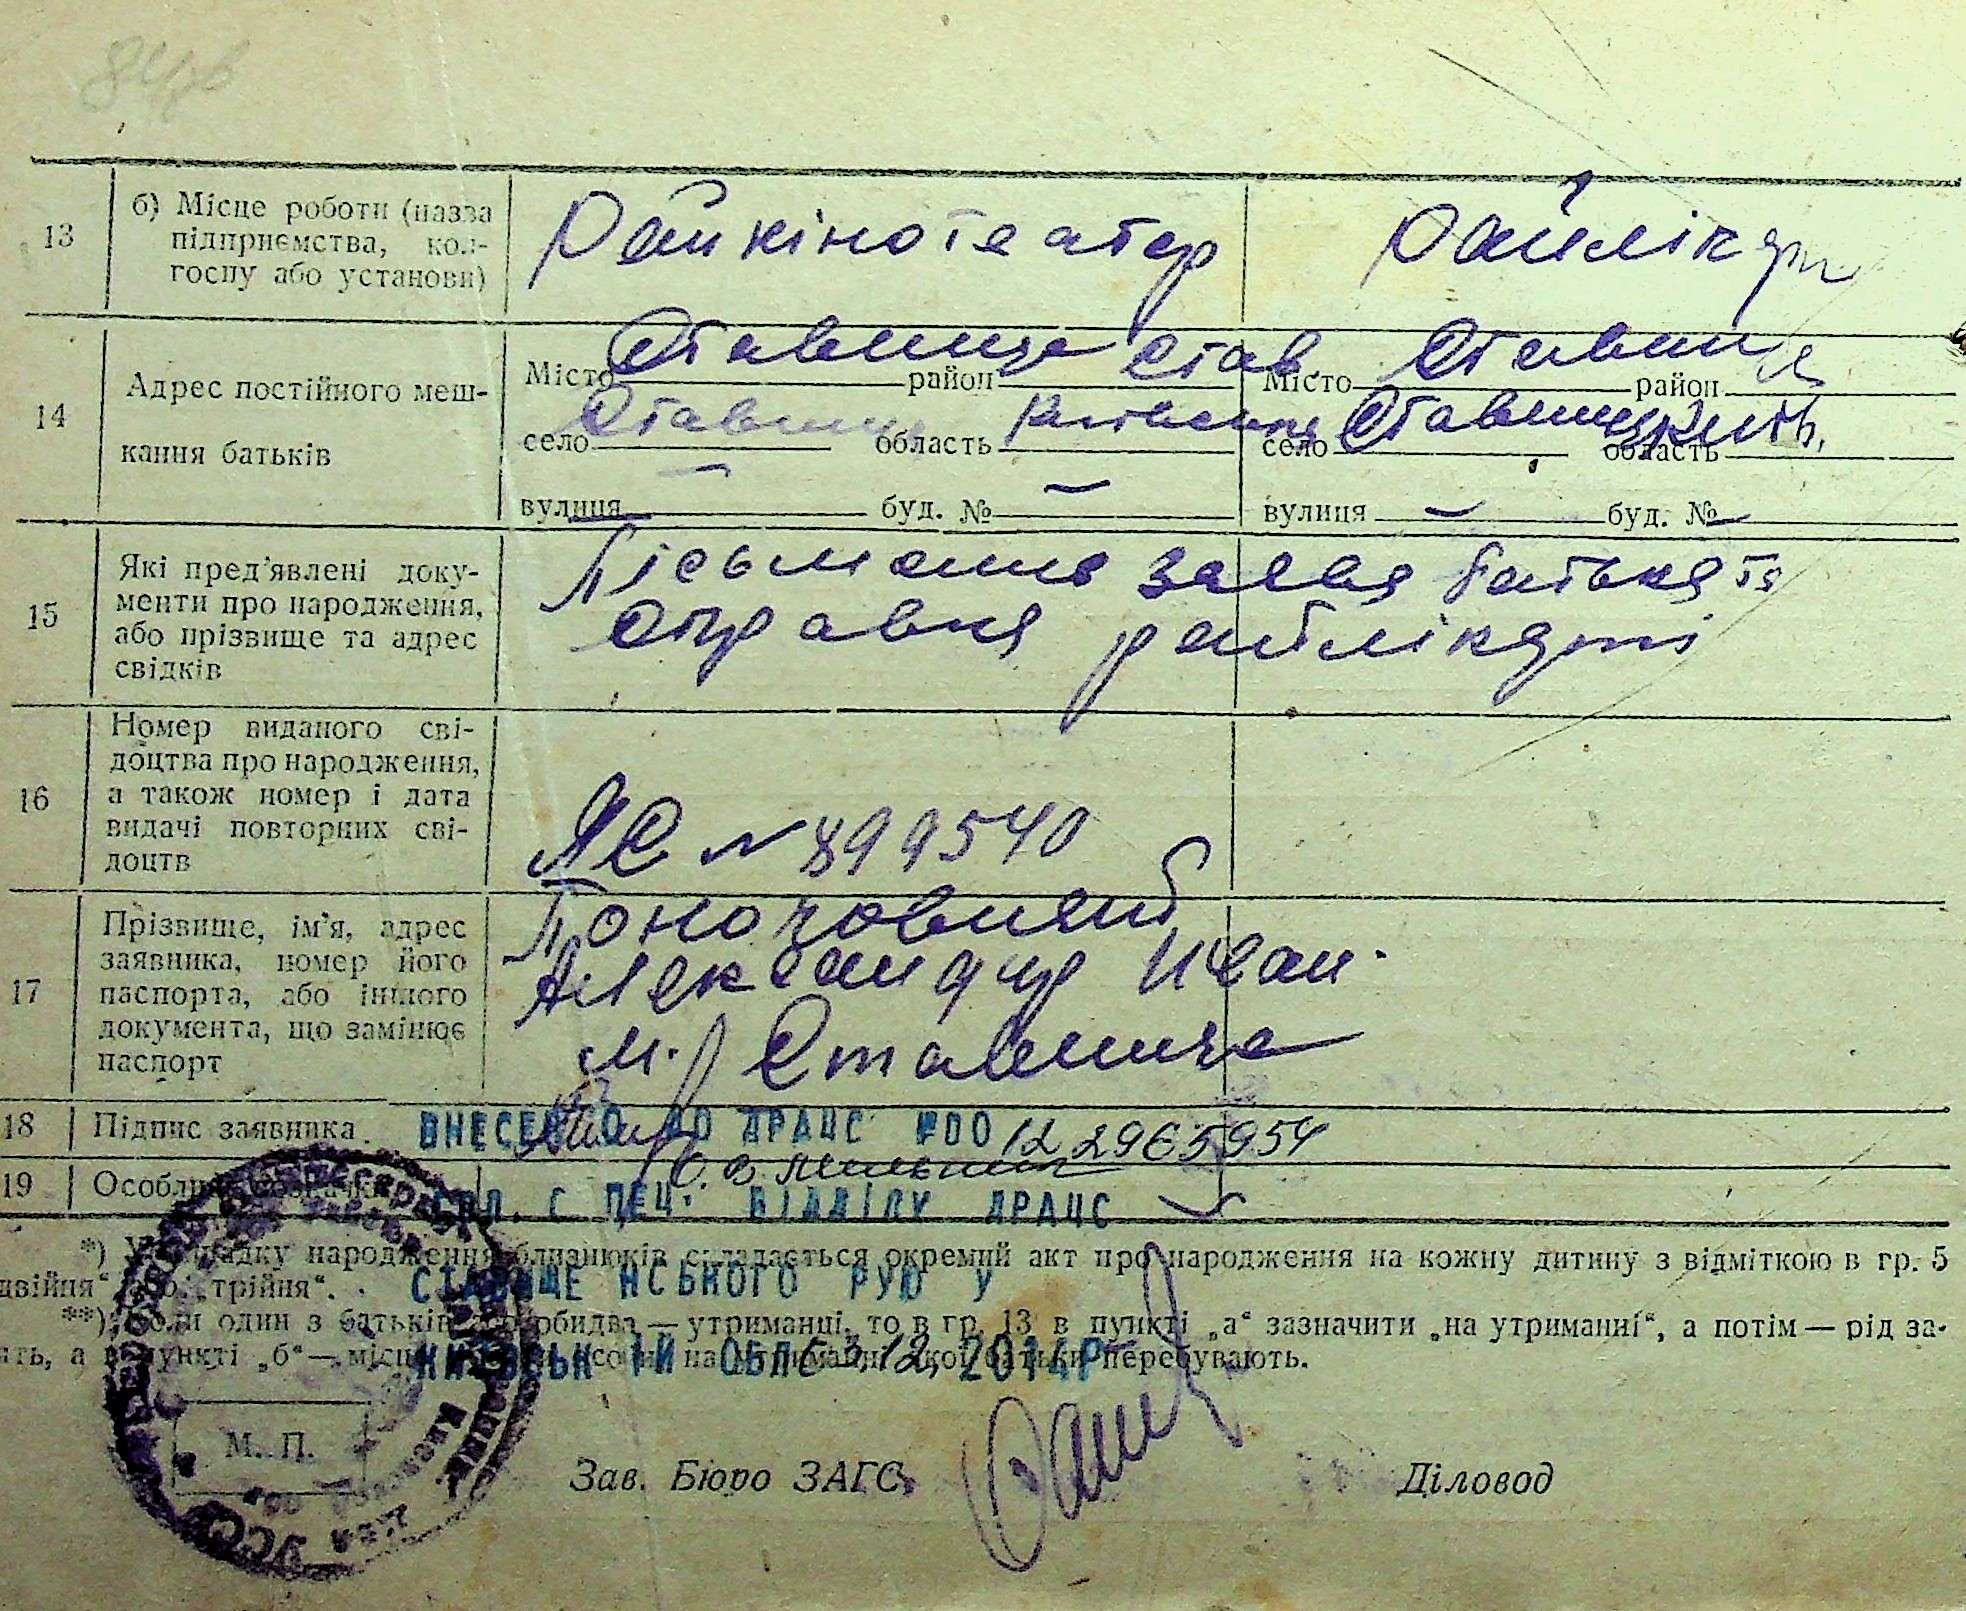 13
б) Місце роботи (назва
підприємства, кол-
госпу або установи)
Райкінотеатр
Райлікарн
14
Адрес постійного меш-
кання батьків
Місто Ставище район Став.
село Ставище область Київська
вулиця — буд. № —
Місто Ставище район
село Ставище область Київ.
вулиця — буд. № —
15
Які пред'явлені доку-
менти про народження,
або прізвище та адрес
свідків
Пісьмена заява батька та
справка райлікарні
16
Номер виданого сві-
доцтва про народження,
а також номер і дата
видачі повторних сві-
доцтв
ЯС № 899540
17
Прізвище, ім'я, адрес
заявника, номер його
паспорта, або іншого
документа, що замінює
паспорт
Александр Иван.
м. Ставище
18
Підпис заявника
ВНЕСЕНО ДО ДРАЦС №00 122965954
19
Особливі
СПЕЦ. ВІДДІЛУ ДРАЦС
*) У випадку народження близнюків складається окремий акт про народження на кожну дитину з відміткою в гр. 5
двійня“ або „трійня“.
СТАВИЩЕНСЬКОГО РУЮ У
**) Коли один з батьків або обидва — утриманці, то в гр. 13 в пункті „а“ зазначити „на утриманні“, а потім — рід за-
ять, а в пункті „б“ — місце на утриманні якої батьки перебувають.
КИЇВСЬКІЙ ОБЛ 2014Р
М. П.
УССР
Зав. Бюро ЗАГС
Діловод